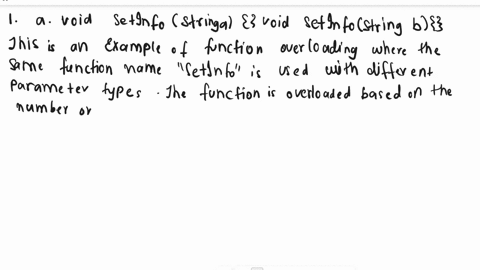 1. a. void SetInfo (String a) {} void SetInfo (String b) {}
This is an example of function overloading where the
same function name "SetInfo" is used with different
Parameter types. The function is overloaded based on the
number or